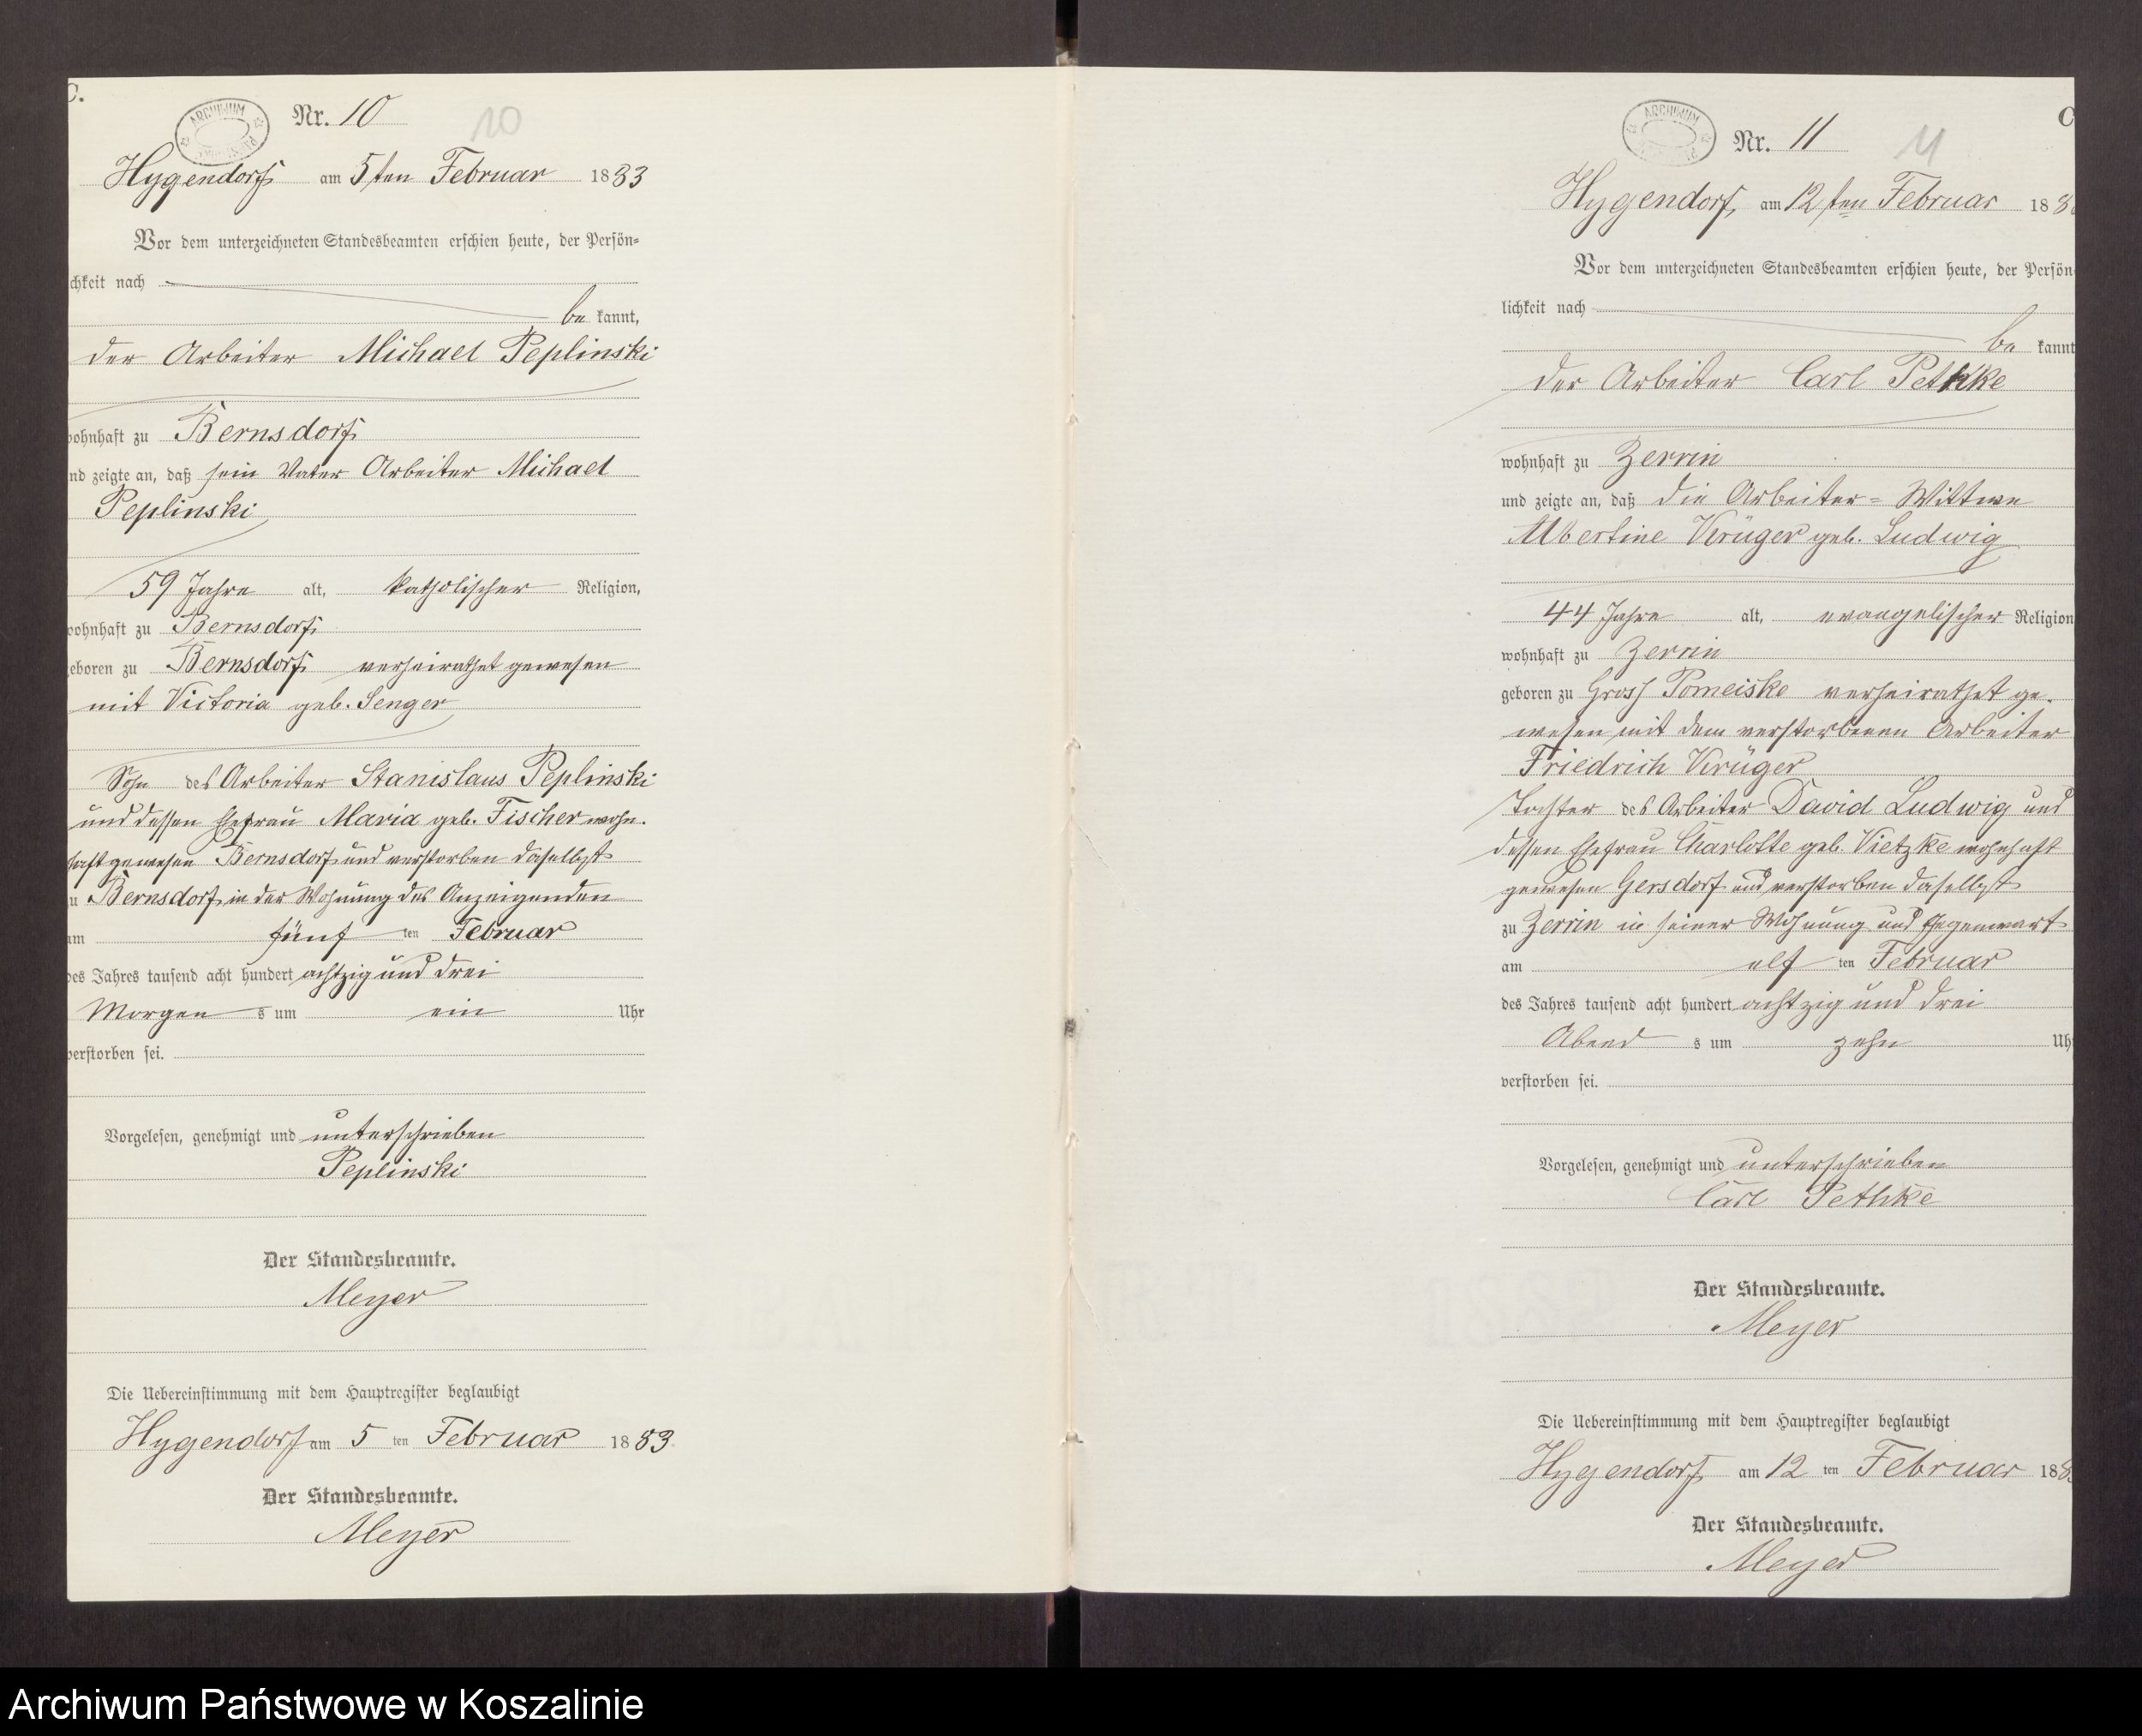 C.
Nr. 10
10
ARCHIWUM
Hygendorf am 5ten Februar 1883
Vor dem unterzeichneten Standesbeamten erschien heute, der Persön-
chkeit nach
be kannt,
der Arbeiter Michael Peplinski
ohnhaft zu Bernsdorf
nd zeigte an, daß sein Vater Arbeiter Michael
Peplinski
59 Jahre alt, katholischer Religion,
ohnhaft zu Bernsdorf
eboren zu Bernsdorf verheirathet gewesen
mit Victoria geb. Senger
Sohn des Arbeiter Stanislaus Peplinski
und dessen Ehefrau Maria geb. Fischer wohn-
haft gewesen Bernsdorf und verstorben daselbst
u Bernsdorf in der Wohnung des Anzeigenden
am fünf ten Februar
des Jahres tausend acht hundert achtzig und drei
Morgen s um ein Uhr
verstorben sei.
Vorgelesen, genehmigt und unterschrieben
Peplinski
Der Standesbeamte.
Meyer
Die Uebereinstimmung mit dem Hauptregister beglaubigt
Hygendorf am 5 ten Februar 1883.
Der Standesbeamte.
Meyer
C
Nr. 11
11
ARCHIWUM
Hygendorf, am 12ten Februar 188
Vor dem unterzeichneten Standesbeamten erschien heute, der Persön
lichkeit nach
be kannt
der Arbeiter Carl Pethke
wohnhaft zu Zerrin
und zeigte an, daß die Arbeiter-Wittwe
Albertine Krüger geb. Ludwig
44 Jahre alt, evangelischer Religion
wohnhaft zu Zerrin
geboren zu Gross Pomeiske verheirathet ge-
wesen mit dem verstorbenen Arbeiter
Friedrich Krüger
Tochter des Arbeiter David Ludwig und
dessen Ehefrau Charlotte geb. Vietzke wohnhaft
gewesen Gersdorf und verstorben daselbst
zu Zerrin in seiner Wohnung und Gegenwart
am elf ten Februar
des Jahres tausend acht hundert achtzig und drei
Abend s um zehn Uh
verstorben sei.
Vorgelesen, genehmigt und unterschrieben
Carl Pethke
Der Standesbeamte.
Meyer
Die Uebereinstimmung mit dem Hauptregister beglaubigt
Hygendorf, am 12 ten Februar 188
Der Standesbeamte.
Meyer
Archiwum Państwowe w Koszalinie